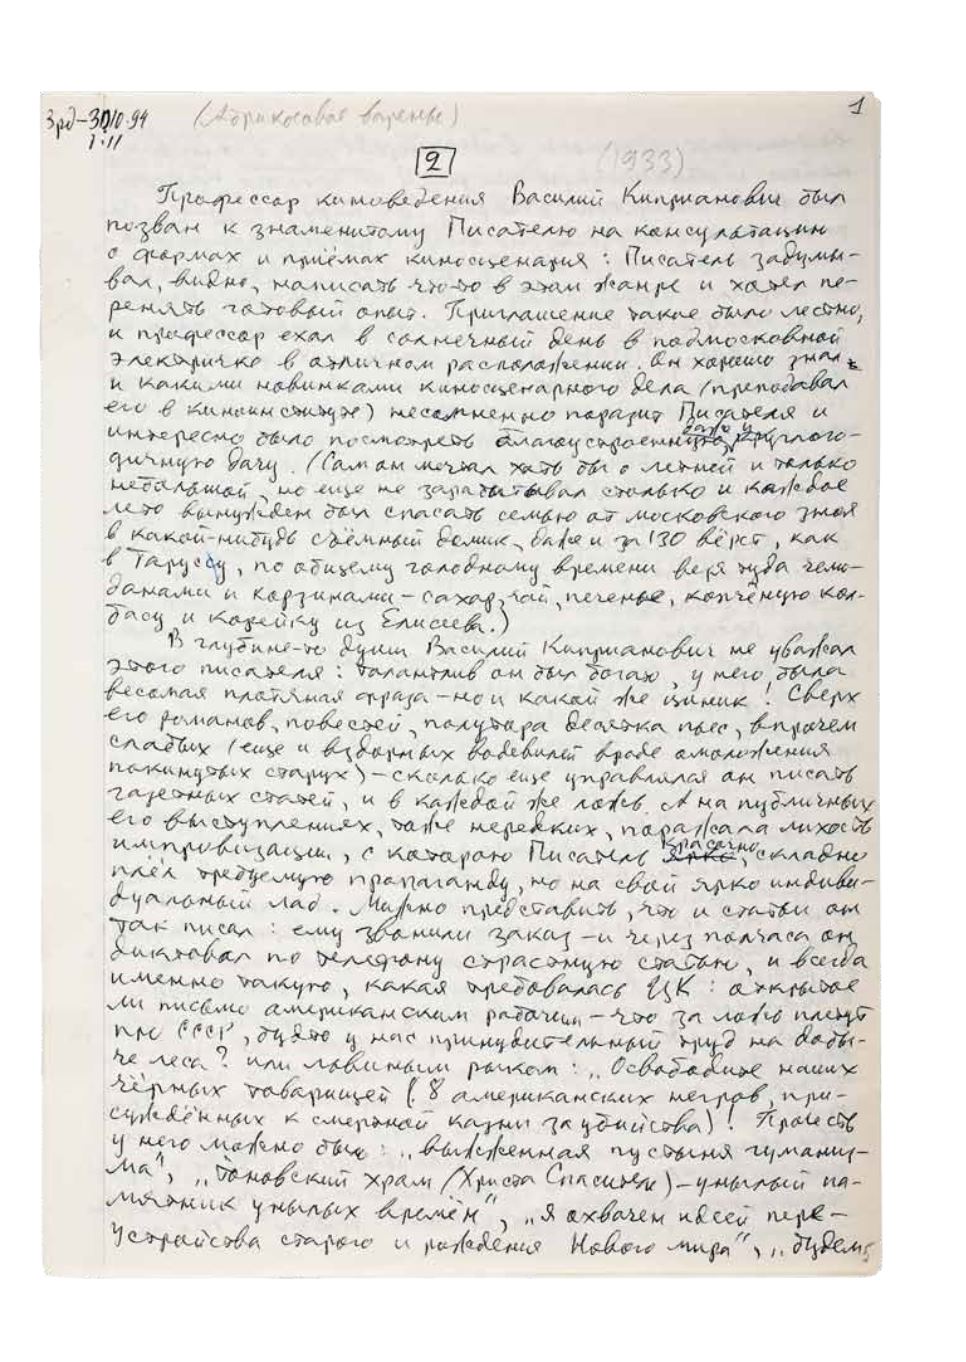 3рд–30/10.94
1:11
(Абрикосовое варенье)
1
2
(1933)
Профессор киноведения Василий Киприанович был
позван к знаменитому Писателю на консультацию
о формах и приёмах киносценария: Писатель задумы-
вал, видно, написать что-то в этом жанре и хотел пе-
ренять готовый опыт. Приглашение такое было лестно,
и профессор ехал в солнечный день в подмосковной
электричке в отличном расположении. Он хорошо знал,
и какими новинками киносценарного дела (преподавал
его в киноинституте) несомненно поразит Писателя и
интересно было посмотреть благоустроенную даже и круглого-
дичную дачу. (Сам он мечтал хоть бы о летней и только
небольшой, но ещё не зарабатывал столько и каждое
лето вынужден был спасать семью от московского зноя
в какой-нибудь съёмный домик, даже и за 130 вёрст, как
в Таруссу, по общему голодному времени везя туда чемо-
данами и корзинами – сахар, чай, печенье, копчёную кол-
басу и корейку из Елисеева.)
В глубине-то души Василий Киприанович не уважал
этого писателя: талантлив он был богато, у него была
весомая плотяная фраза – но и какой же циник! Сверх
его романов, повестей, полутора десятка пьес, впрочем
слабых (ещё и вздорных водевилей вроде омоложения
покинутых старух) – сколько ещё управлялся он писать
газетных статей, и в каждой же ложь. А на публичных
его выступлениях, тоже нередких, поражала лихость
импровизации, с которою Писатель красочно, складно
плёл требуемую пропаганду, но на свой ярко индиви-
дуальный лад. Можно представить, что и статьи он
так писал: ему звонили заказ – и через полчаса он
диктовал по телефону страстную статью, и всегда
именно такую, какая требовалась ЦК: открытое
ли письмо американским рабочим – что за ложь плетут
про СССР, будто у нас принудительный труд на добы-
че леса? или львиным рыком: „Освободите наших
чёрных товарищей (8 американских негров, при-
суждённых к смертной казни за убийства)! Прочесть
у него можно было: „выжженная пустыня гуманиз-
ма“, „тоновский храм (Христа Спасителя) – унылый па-
мятник унылых времён“, „я охвачен идеей пере-
устройства старого и рождения Нового мира“, „будем